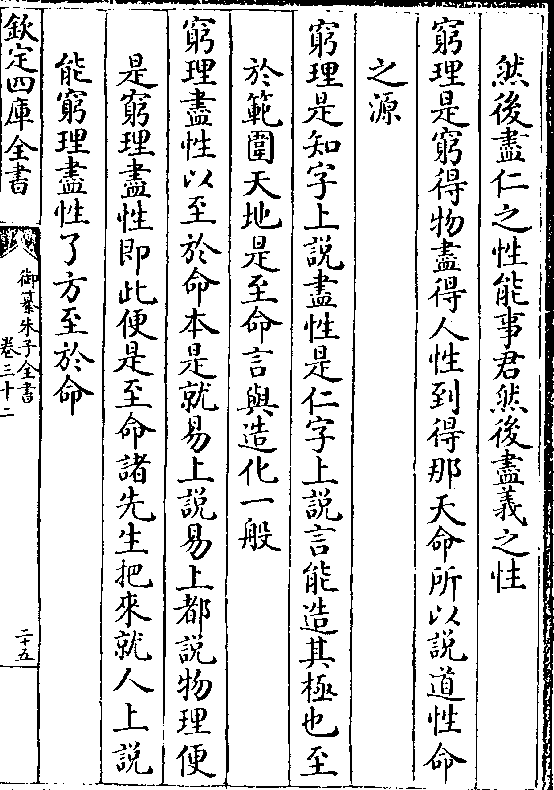 然後盡仁之性能事君然後盡義之性
窮理是窮得物盡得人性到得那天命所以說道性命
之源
窮理是知字上說盡性是仁字上說言能造其極也至
於範圍天地是至命言與造化一般
窮理盡性以至於命本是就易上說易上都說物理便
是窮理盡性即此便是至命諸先生把來就人上說
能窮理盡性了方至於命
欽定四庫全書
御纂朱子全書
卷三十二
二十五